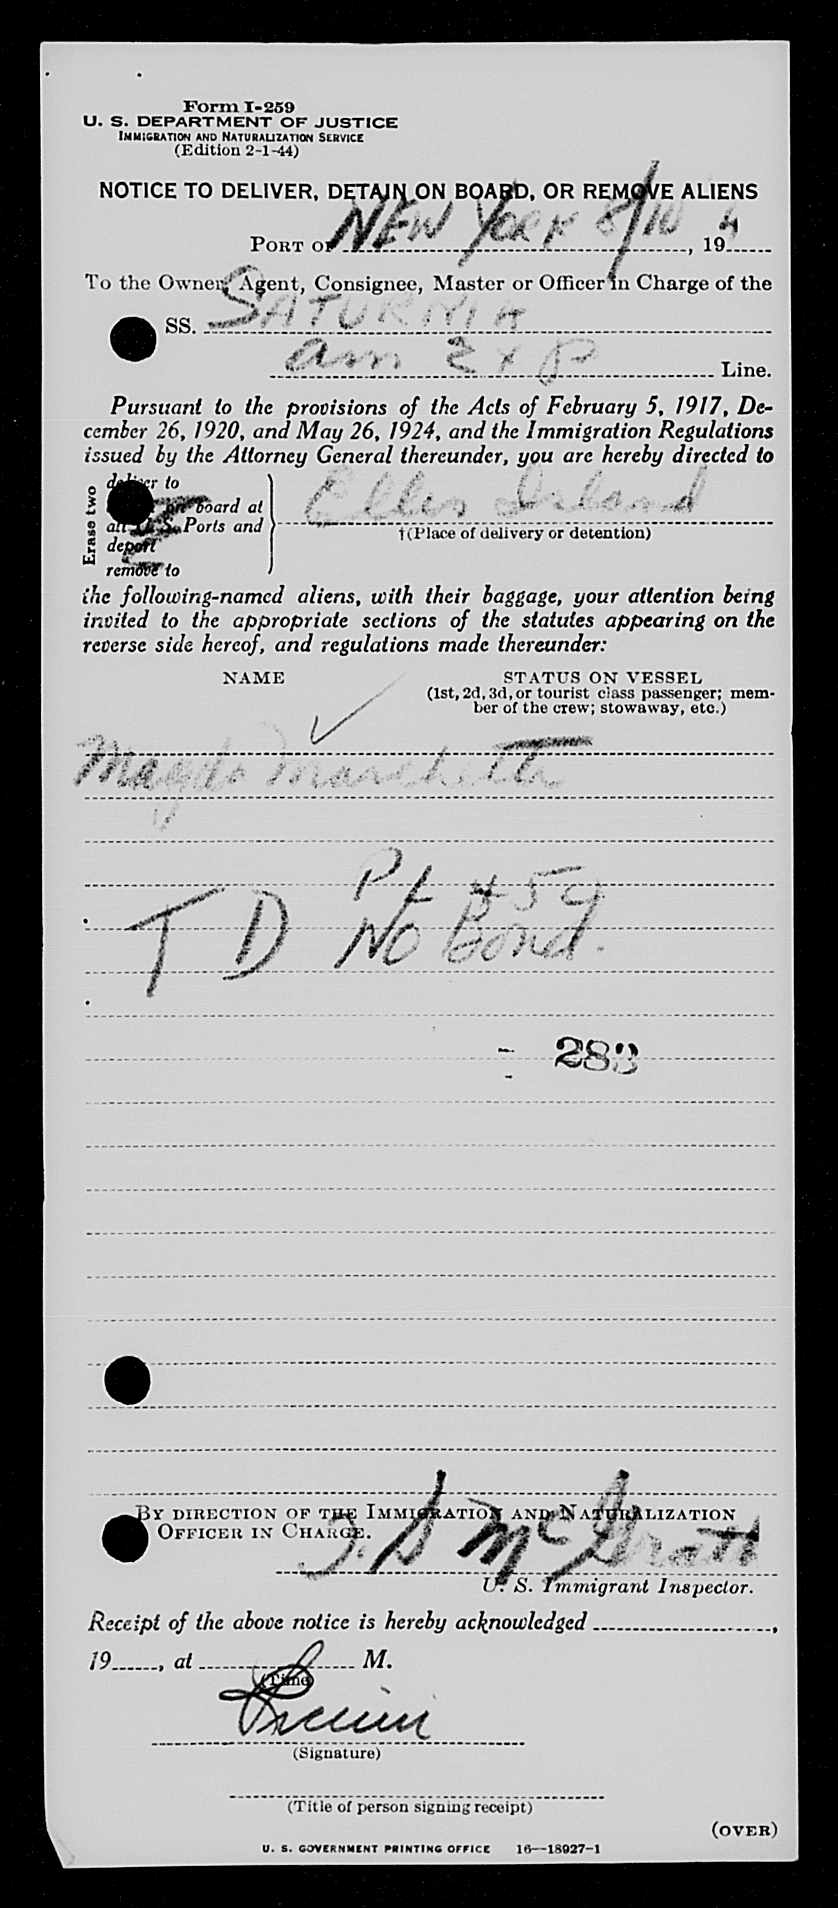 Form I-259
U. S. DEPARTMENT OF JUSTICE
IMMIGRATION AND NATURALIZATION SERVICE
(Edition 2-1-44)
NOTICE TO DELIVER, DETAIN ON BOARD, OR REMOVE ALIENS
PORT OF NEW YORK 8/10, 194
To the Owner, Agent, Consignee, Master or Officer in Charge of the
SS. SATURNIA
Am Exp Line.
Pursuant to the provisions of the Acts of February 5, 1917, De-
cember 26, 1920, and May 26, 1924, and the Immigration Regulations
issued by the Attorney General thereunder, you are hereby directed to
Erase two
deliver to
on board at
all U. S. Ports and
deport
remove to
Ellis Island
†(Place of delivery or detention)
the following-named aliens, with their baggage, your attention being
invited to the appropriate sections of the statutes appearing on the
reverse side hereof, and regulations made thereunder:
NAME STATUS ON VESSEL
(1st, 2d, 3d, or tourist class passenger; mem-
ber of the crew; stowaway, etc.)
Magda Marchetti
TD
No Bond.
283
BY DIRECTION OF THE IMMIGRATION AND NATURALIZATION
OFFICER IN CHARGE.
McGrath
U. S. Immigrant Inspector.
Receipt of the above notice is hereby acknowledged ,
19 , at M.
(Time)
(Signature)
(Title of person signing receipt)
(OVER)
U. S. GOVERNMENT PRINTING OFFICE 16—18927-1